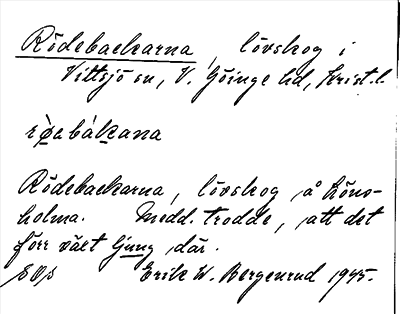 Rödebackarna, lövskog i
Vittsjö sn, V. Göinge hd, Krist.l.
røebákana
Rödebackarna, lövskog å Höns-
holma. Medd. trodde, att det
förr växt ljung där.
Erik W. Bergenrud 1945.